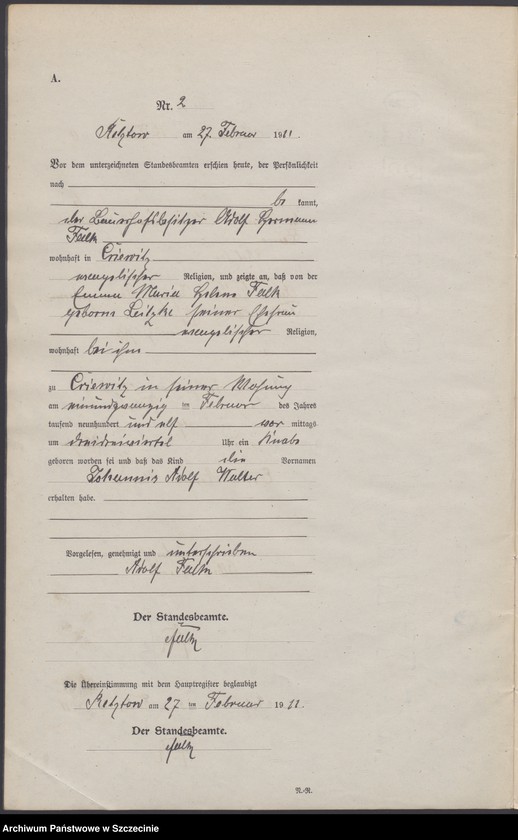 A.
Nr. 2
Retztow am 27. Februar 1911.
Vor dem unterzeichneten Standesbeamten erschien heute, der Persönlichkeit
nach
be kannt,
der Bauerhofsbesitzer Adolf Hermann
Falk
wohnhaft in Criewitz
evangelischer Religion, und zeigte an, daß von der
Emma Maria Helene Falk
geborene Leitzke seiner Ehefrau
evangelischer Religion,
wohnhaft bei ihm
zu Criewitz in seiner Wohnung
am einundzwanzig ten Februar des Jahres
tausend neunhundert und elf vor mittags
um dreidreiviertel Uhr ein Knabe
geboren worden sei und daß das Kind die Vornamen
Johannis Adolf Walter
erhalten habe.
Vorgelesen, genehmigt und unterschrieben
Adolf Falk
Der Standesbeamte.
Falk
Die Übereinstimmung mit dem Hauptregister beglaubigt
Retztow am 27 ten Februar 1911.
Der Standesbeamte.
Falk
N.-R.
Archiwum Państwowe w Szczecinie